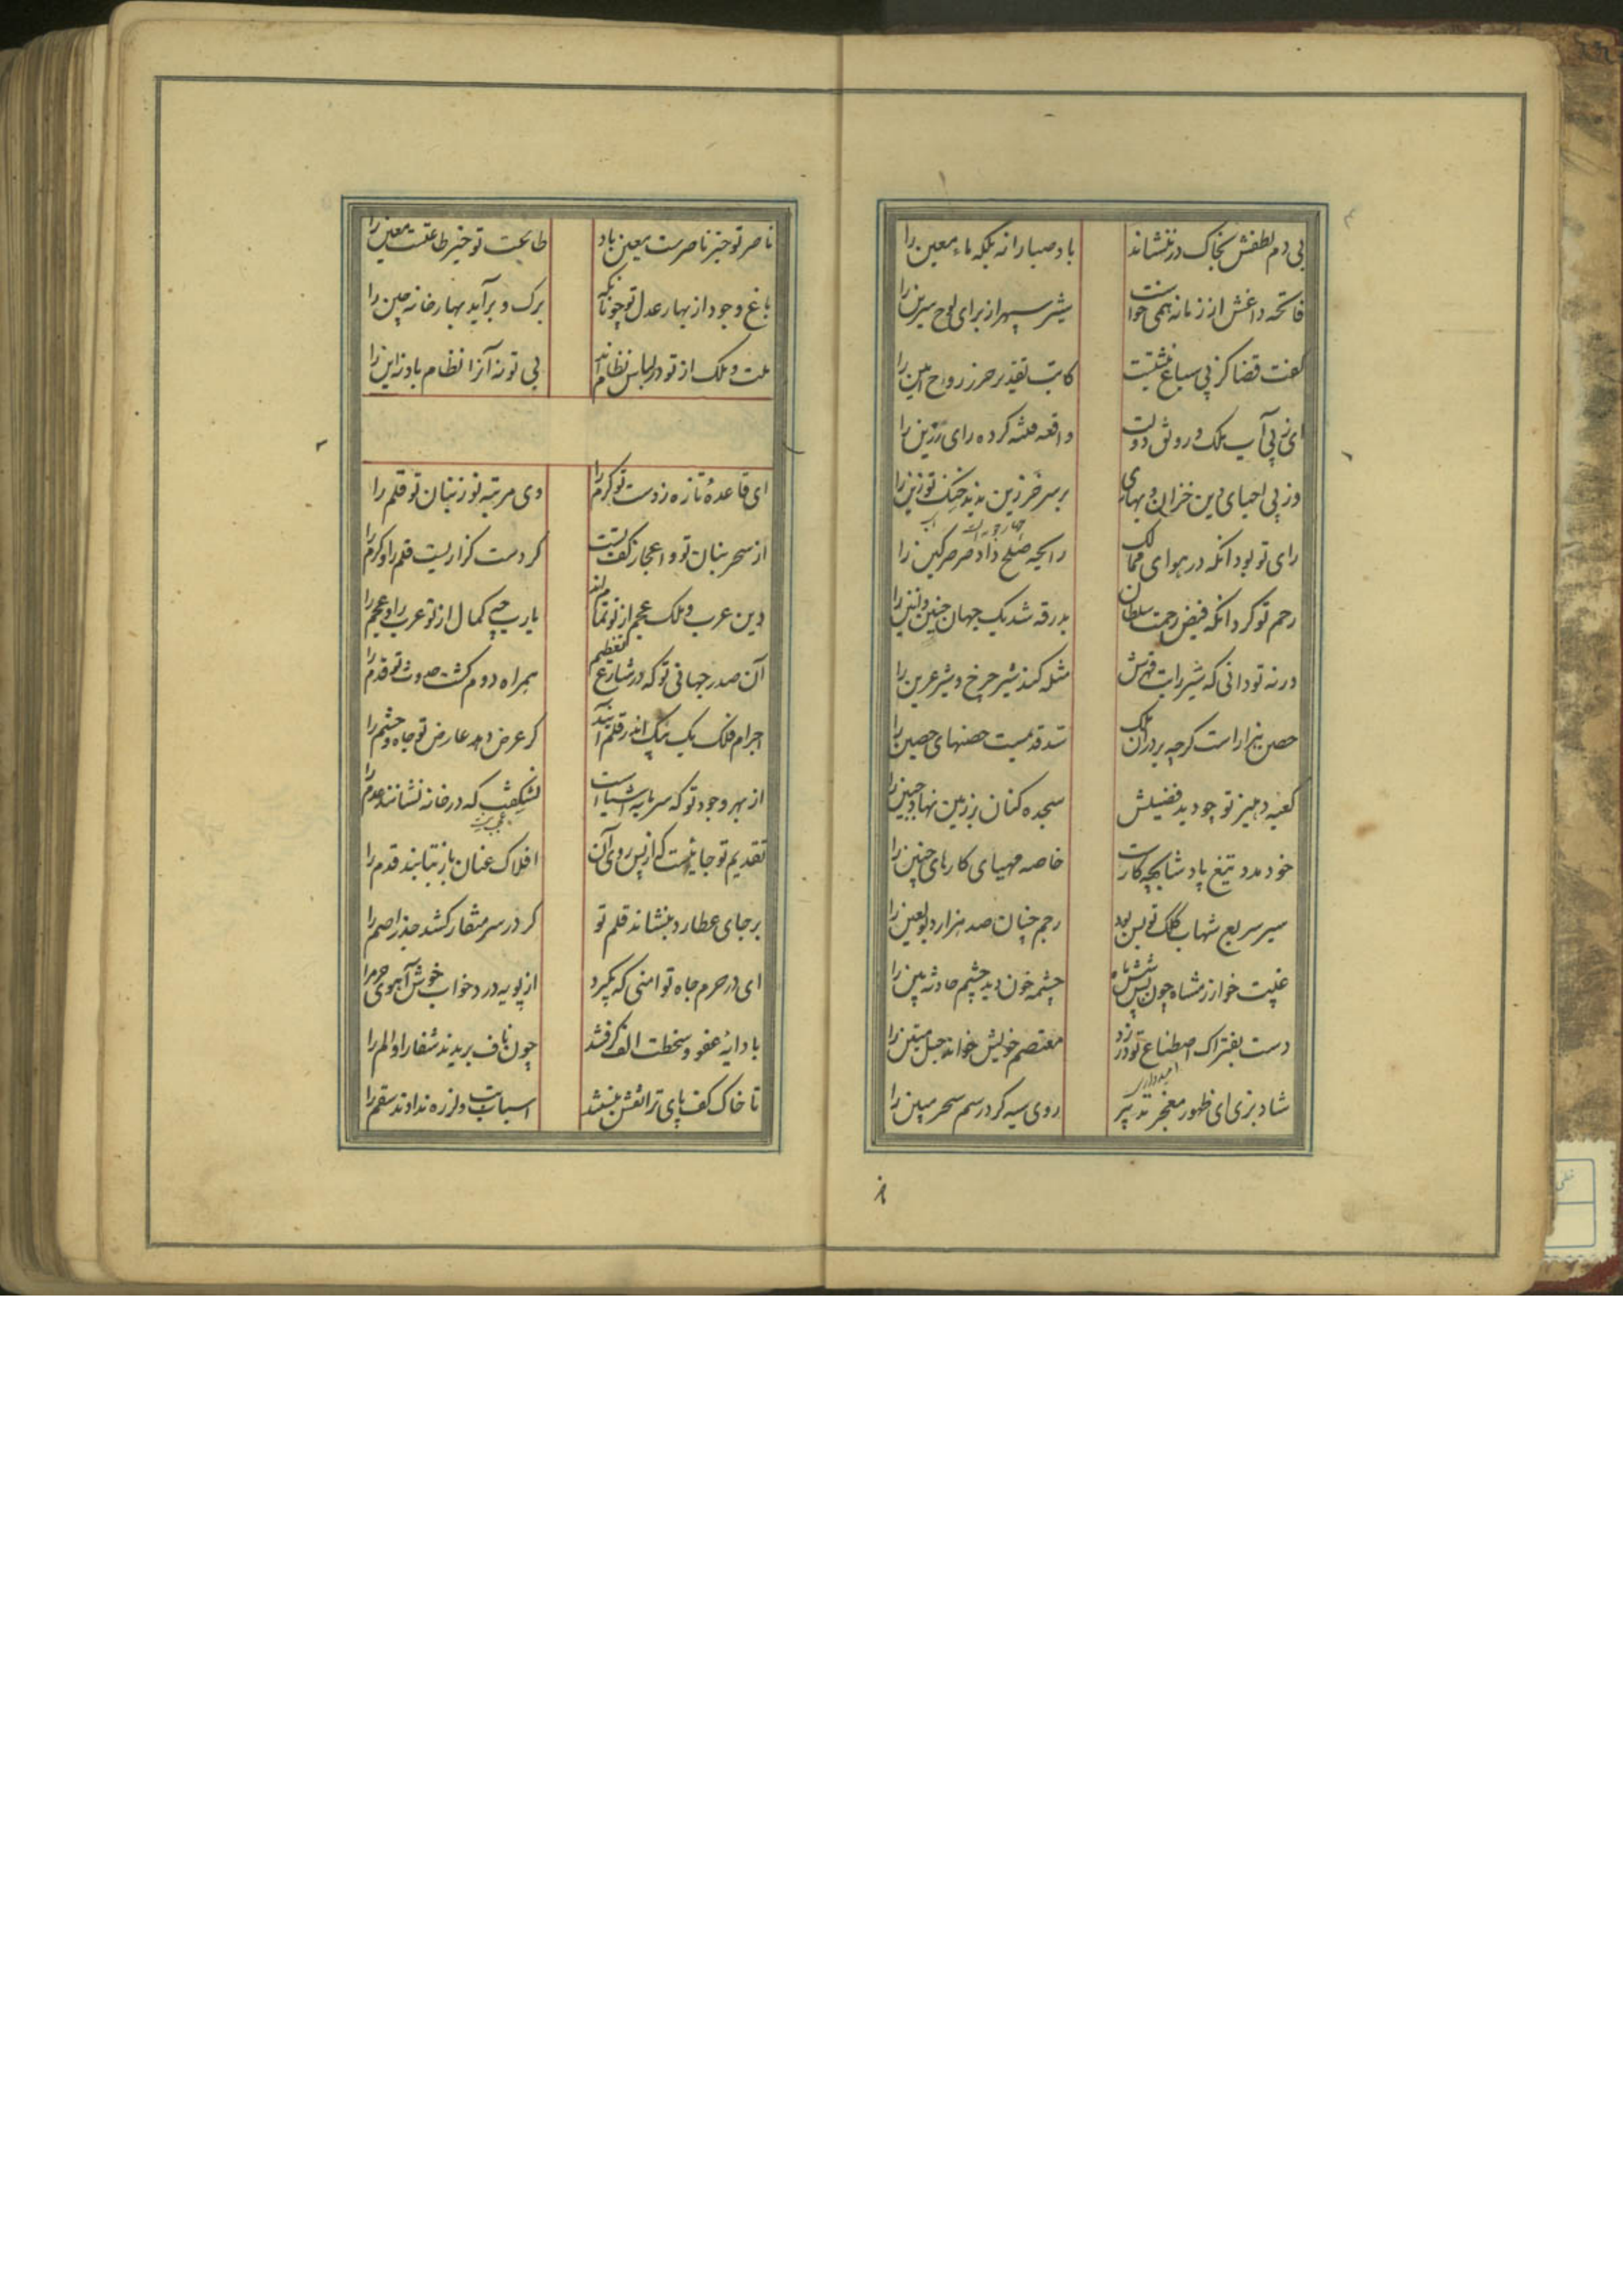 بی دم لطفش بخاک در ننشاند باد صبا را نه بلکه ماء معین را
فاتحه داغش از زمانه همی خواست شیر سپهر از برای لوح سرین را
گفت قضا کز پی سباع نبشتست کاتب تقدیر حرز روح امین را
ای ز پی آب ملک و رونق دولت واقعه فتنه کرده رای رزین را
وز پی احیای دین خزان و بهاری بر سر خر زین ندید خنگ تو زین را
رای تو بود آنکه در هوای ممالک رایحه صلح داد صرصر کین را
رحم تو کرد آنکه فیض رحمت سلطان بدرقه شد یک جهان حنین و انین را
ورنه تو دانی که شیر رایت قهرش مثله کند شیر چرخ و شیر عرین را
حصن هزار است کرچه بر در آن ملک سد قدمیست حصنهای حصین را
کعبه دهلیز تو چو دید فضیلتش سجده کنان بر زمین نهاد جبین را
خود مدد تیغ پادشا بچه کارست خاصه مهیای کارهای چنین را
سیر سریع شهاب کلک تو بس بود رجم چنان صد هزار دیو لعین را
غیبت خوارزمشاه چون پس شش ماه چشمه خون دید چشم حادثه بین را
دست بفتراک اصطناع تو در زد معتصم خویش خواند حبل متین را
شاد بزی ای ظهور معجز تدبیر روی سیه کرد رسم سحر مبین را
ناصر تو خیر ناصرست معین باد طاعت تو خیر طاعتست معین را
باغ وجود از بهار عدل تو چونانکه برک و بر آید بهارخانه چین را
ملت و ملک از تو در لباس نظام اند بی تو نه آنرا نظام باد نه این را
ای قاعده تازه ز دست تو کرم را وی مرتبه نو ز بنان تو قلم را
از سحر بنان تو و اعجاز کف تست گر دست گزاریست قلم را و کرم را
دین عرب و ملک عجم از تو تمامند یارب چه کمال از تو عرب را و عجم را
آن صدر جهانی تو که در شارع تعظیم همراه دوم گشت حدوث تو قدم را
اجرام فلک یک بیک اندر قلم آیند گر عرض دهد عارض تو جاه و حشم را
از بهر وجود تو که سرمایه اشیاست نشکفت که در خانه نشانند عدم را
تقدیم تو جائیست که از پس روی آن افلاک عنان باز نتابند قدم را
بر جای عطارد بنشاند قلم تو گر در سر منقار کشد جذر اصم را
ای در حرم جاه تو امنی که نگیرد از پویه درد خواب خوش آهوی حرم را
با دایه عفو و سخطت الف گرفتند چون ناف بریدند شفا را و الم را
تا خاک کف پای ترا نقش نبستند اسباب تب و لرزه ندادند سقم را